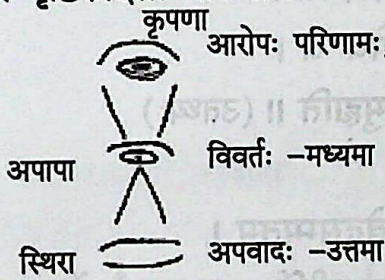 कृपणा
आरोपः परिणामः
अपापा विवर्तः –मध्यमा
स्थिरा अपवादः –उत्तमा